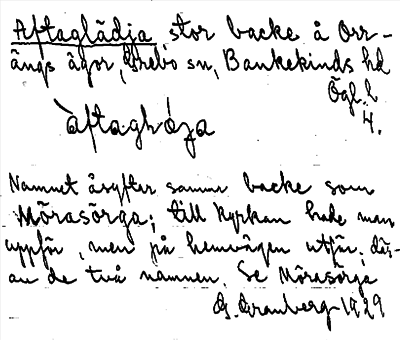 Aftaglädja, stor backe å Orr-
ängs ägor, Grebo sn, Bankekinds hd
Ögl. l
4.
Namnet åsyftar samma backe som
Mörasörga; till kyrkan hade man
uppför, men på hemvägen utför, där-
av de två namnen. Se Mörasörga
G. Granberg 1929